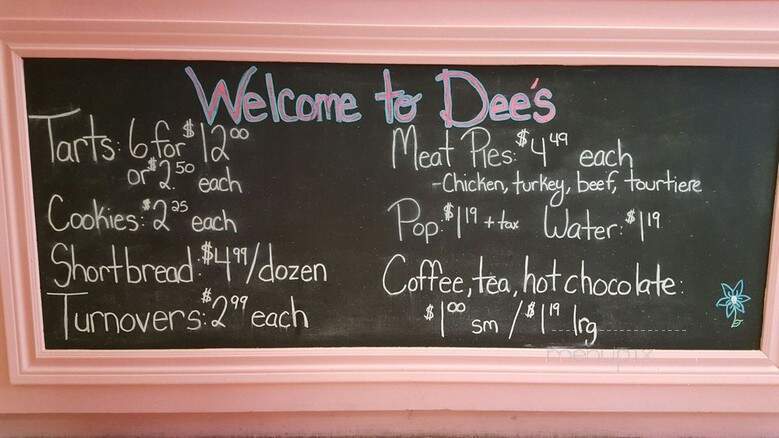 Welcome to Dee's
Tarts: 6 for $12.00
or $2.50 each
Cookies: $2.25 each
Shortbread: $4.99/dozen
Turnovers: $2.99 each
Meat Pies: $4.49 each
-Chicken, turkey, beef, tourtiere
Pop: $1.19 + tax Water: $1.19
Coffee, tea, hot chocolate:
$1.00 sm / $1.19 lrg
menupix